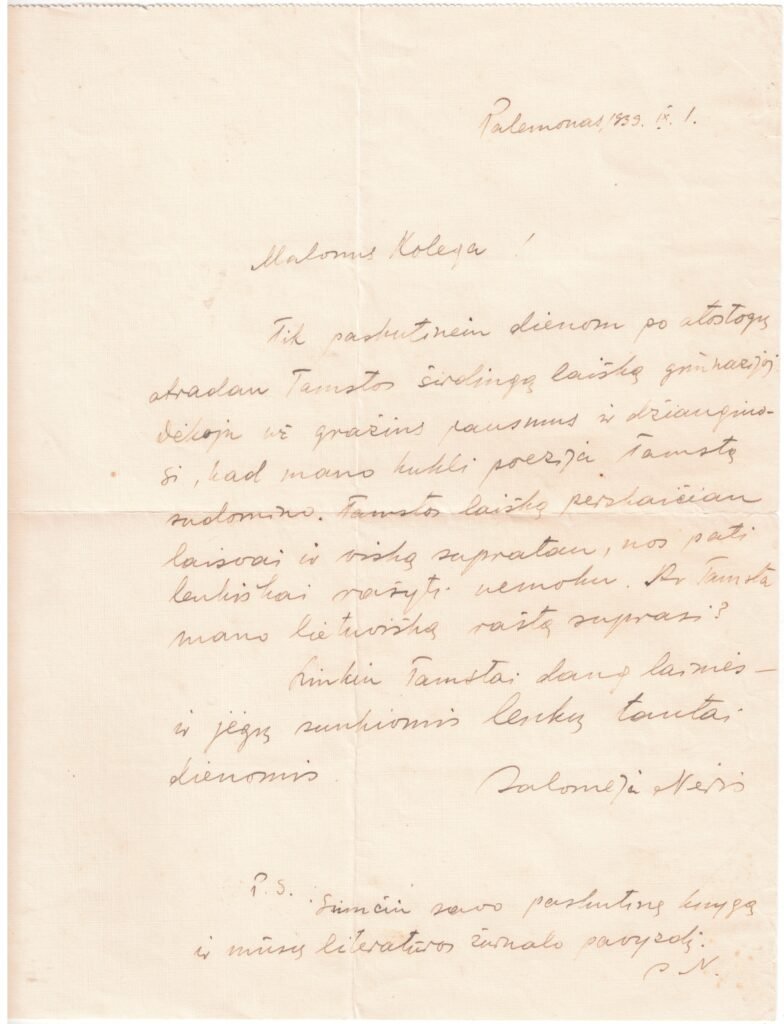 Palemonas, 1939. IX. 1.
Malonus Kolega!
Tik paskutinėm dienom po atostogų
atradau Tamstos širdingą laišką gimnazijoj
Dėkoju už gražius jausmus ir džiauginuo-
si, kad mano kukli poezija Tamstą
sudomino. Tamstos laišką perskaičiau
laisvai ir viską supratau, nors pati
lenkiškai rašyti nemoku. Ar Tamsta
mano lietuvišką raštą suprasi?
Linkiu Tamstai daug laimės –
ir jėgų sunkiomis lenkų tautai
dienomis.
Salomėja Nėris
P.S. Siunčiu savo paskutinę knygą
ir mūsų literatūros žurnalo pavyzdį.
S. N.